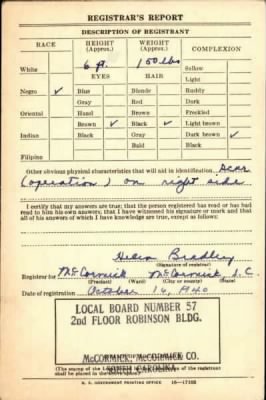 REGISTRAR'S REPORT
DESCRIPTION OF REGISTRANT
RACE HEIGHT (Approx.) WEIGHT (Approx.) COMPLEXION
6 ft. 150 lbs
White EYES HAIR Sallow
Light
Negro ✓ Blue Blonde Ruddy
Gray Red Dark
Oriental Hazel Brown Freckled
Brown ✓ Black ✓ Light brown
Indian Black Gray Dark brown ✓
Bald Black
Filipino
Other obvious physical characteristics that will aid in identification Scar
(operation) on right side
I certify that my answers are true; that the person registered has read or has had
read to him his own answers; that I have witnessed his signature or mark and that
all of his answers of which I have knowledge are true, except as follows:
Helen Bradley
(Signature of registrar)
Registrar for McCormick McCormick, S.C.
(Precinct) (Ward) (City or county) (State)
Date of registration October 16, 1940
LOCAL BOARD NUMBER 57
2nd FLOOR ROBINSON BLDG.
McCORMICK, McCORMICK CO.
SOUTH CAROLINA
(The stamp of the
U. S. GOVERNMENT PRINTING OFFICE 16—17105